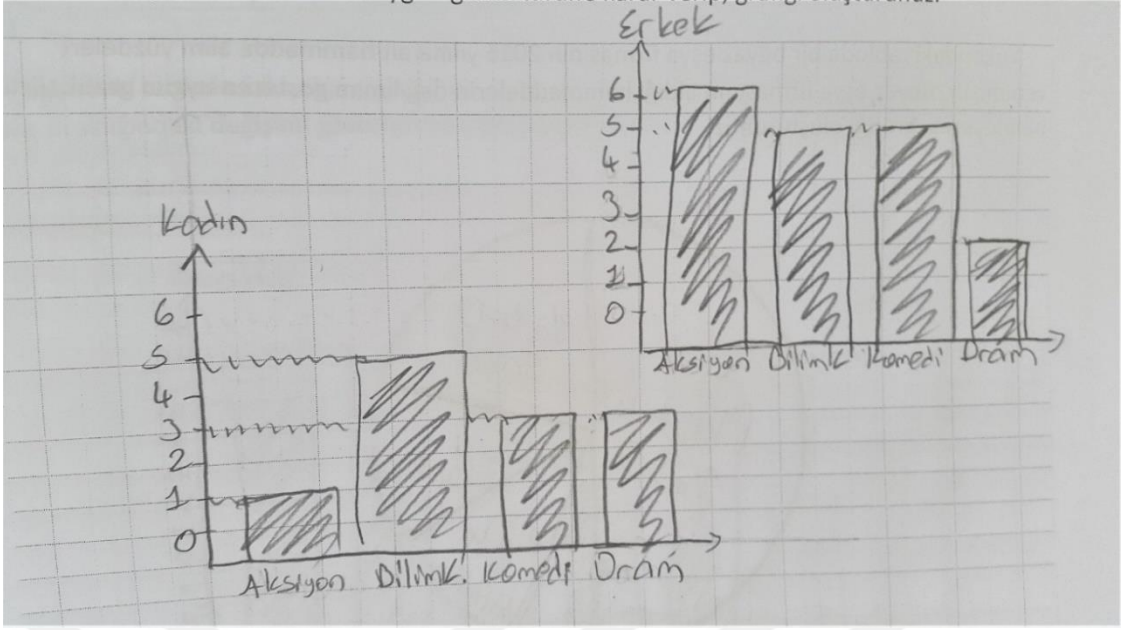 Erkek
6
5
4
3
2
1
0
Aksiyon Bilimk Komedi Dram
Kadın
6
5
4
3
2
1
0
Aksiyon Bilimk. Komedi Dram